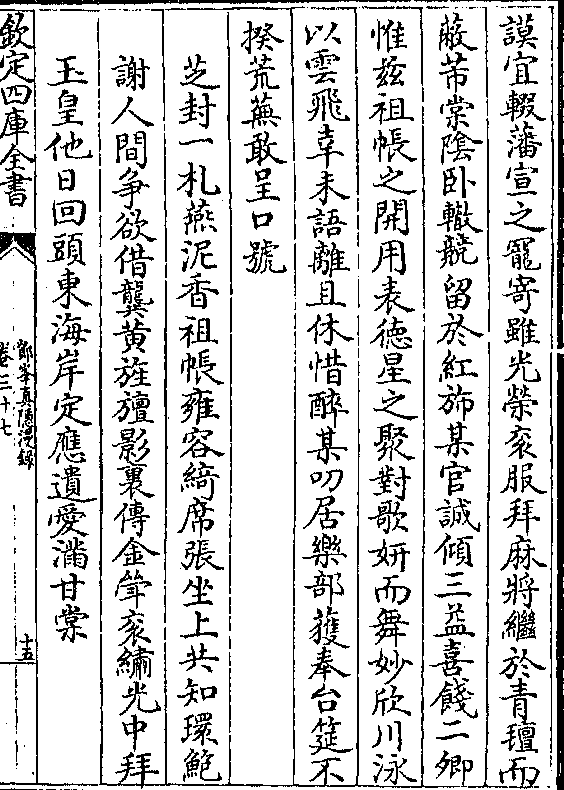 謨宜輟藩宣之寵寄雖光榮衮服拜麻將繼於青氊而
蔽芾棠隂卧轍競留於紅斾某官誠傾三益喜餞二卿
惟兹祖帳之開用表德星之聚對歌妍而舞妙欣川泳
以雲飛幸未語離且休惜醉某叨居樂部獲奉台筵不
揆荒蕪敢呈口號
芝封一札燕泥香祖帳雍容綺席張坐上共知環鮑
謝人間爭欲借龔黄旌旜影裏傳金聲衮繡光中拜
玉皇他日回頭東海岸定應遺愛滿甘棠
欽定四庫全書
鄮峯真隱漫録
卷三十七
十五